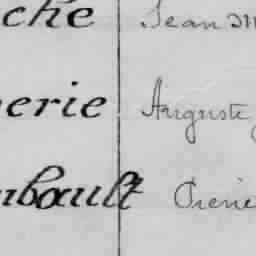 che Jean M
erie Auguste
mbault Pierre